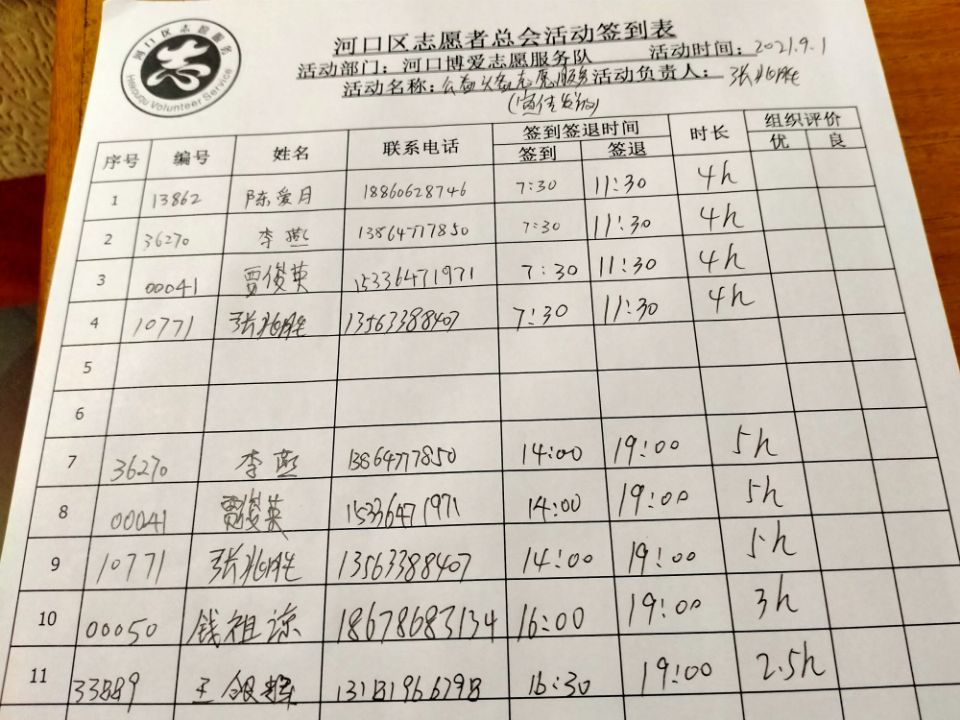 河口区志愿服务
Hekouqu Volunteer Service
河口区志愿者总会活动签到表
活动部门：河口博爱志愿服务队 活动时间：2021.9.1
活动名称：公益 志愿服务 活动负责人：张兆胜
序号 编号 姓名 联系电话 签到签退时间 时长 组织评价
签到 签退 优 良
1 13862 陈爱月 18860628746 7:30 11:30 4h
2 36270 李燕 13864777850 7:30 11:30 4h
3 00041 贾俊英 15336471971 7:30 11:30 4h
4 10771 张兆胜 13563388407 7:30 11:30 4h
5
6
7 36270 李燕 13864777850 14:00 19:00 5h
8 00041 贾俊英 15336471971 14:00 19:00 5h
9 10771 张兆胜 13563388407 14:00 19:00 5h
10 00050 钱祖谅 18678683134 16:00 19:00 3h
11 33889 王银 16:30 19:00 2.5h